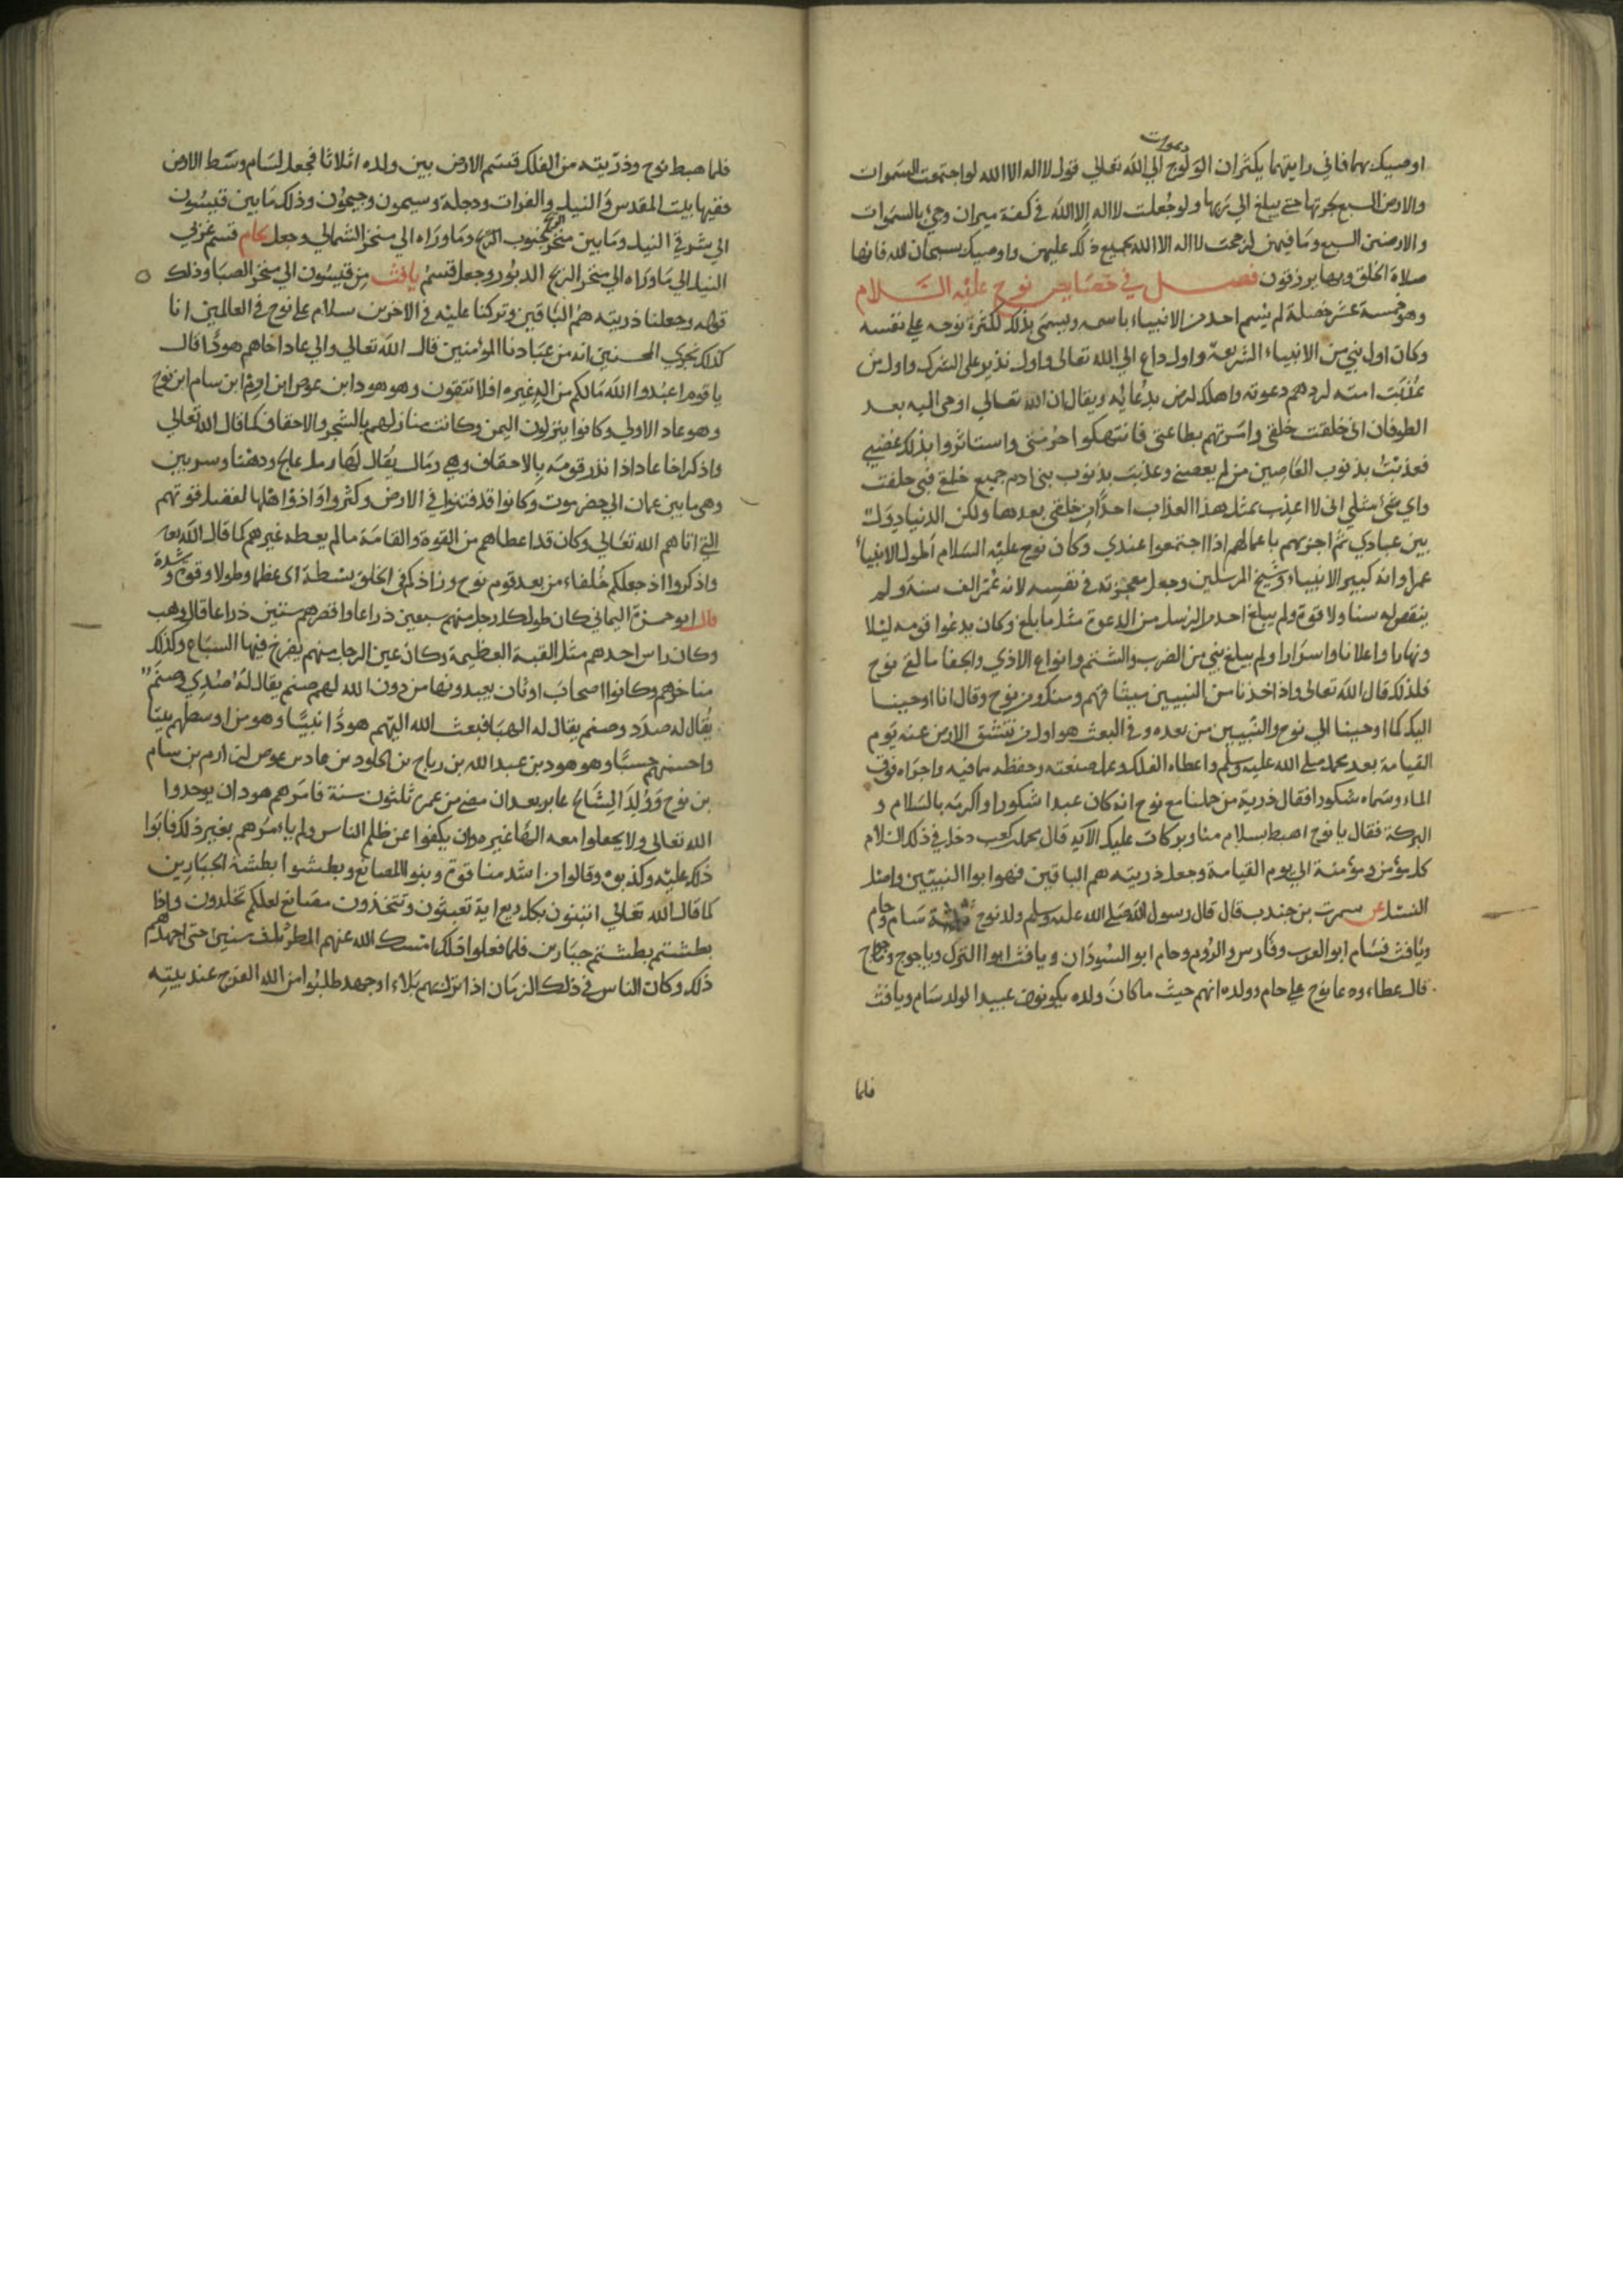 اوصيك بهما فاني رايتهما يكثران الولوج الي الله تعالي قول لا اله الا الله لو اجتمعت السموات
والارض السبع بحوتها حتي يبلغ الي ربها ولو جعلت لا اله الا الله في كفة ميزان وجئ بالسموات
والارضين السبع وما فيهن لرجحت لا اله الا الله بجميع ذلك عليهن واوصيك بسبحان الله فانها
صلاة الخلق وبها يرزقون فصل في خصايص نوح عليه السلام
وهو خمسة عشر خصلة لم يسم احد من الانبياء باسمه ويسمي بذلك لكثرة نوحه علي نفسه
وكان اول نبي من الانبياء الشريعة واول داع الي الله تعالي واول نذير علي الشرك واول من
عذبت امته لردهم دعوته واهلك لرض بدعائه ويقال ان الله تعالي اوحي اليه بعد
الطوفان اني خلقت خلقي وامرتهم بطاعتي فانتهكوا حرمتي واستاثروا بذلك غضبي
فعذبت بذنوب العاصين من لم يعصني وعذبت بذنوب بني ادم جميع خلقي فبي حلفت
واي شئ مثلي اني لا اعذب بمثل هذا العذاب احدا من خلقي بعدها ولكن الدنيا دول
بين عبادي ثم اجزيهم باعمالهم اذا اجتمعوا عندي وكان نوح عليه السلام اطول الانبياء
عمرا وانه كبير الانبياء وشيخ المرسلين وجعل معجزته في نفسه لانه عمر الف سنة ولم
ينقص له سنا ولا قوة ولم يبلغ احد من الرسل من الدعوة مثل ما بلغ وكان يدعوا قومه ليلا
ونهارا واعلانا واسرارا ولم يبلغ نبي من الضرب والشتم وانواع الاذي والجفا ما لقي نوح
فلذلك قال الله تعالي واذ اخذنا من النبيين ميثاقهم ومنك ومن نوح وقال انا اوحينا
اليك كما اوحينا الي نوح والنبيين من بعده وفي البعث هو اول من تنشق الارض عنه يوم
القيامة بعد محمد صلي الله عليه وسلم واعطاه الفلك وعلمه صنعته وحفظه بما فيه واجراه فوق
الماء وسماه شكورا فقال ذرية من حملنا مع نوح انه كان عبدا شكورا واكرمه بالسلام و
البركة فقال يا نوح اهبط بسلام منا وبركات عليك الآية قال محمد بن كعب دخل في ذلك السلام
كل مؤمن ومؤمنة الي يوم القيامة وجعل ذريته هم الباقين فهوا ابوا النبيين واصل
النسل عن سمرت بن جندب قال قال رسول الله صلي الله عليه وسلم ولد نوح ثلثة سام وحام
ويافث فسام ابو العرب وفارس والروم وحام ابو السودان ويافث ابوا الترك وياجوج وماجوج
قال عطاء ودعا نوح علي حام وولده انهم حيث ما كان ولده يكونون عبيدا لولد سام ويافث
فلما
فلما هبط نوح وذريته من الفلك قسم الارض بين ولده اثلاثا فجعل لسام وسط الارض
ففيها بيت المقدس والنيل والفرات ودجلة وسيحون وجيحون وذلك ما بين قيسون
الي شرقي النيل وما بين منخر الريح الجنوب وما وراه الي منخر الشمالي وجعل لحام قسم غربي
النيل الي ما وراه الي منخر الريح الدبور وجعل قسم يافث من قيسون الي منخر الصبا وذلك
قوله وجعلنا ذريته هم الباقين وتركنا عليه في الاخرين سلام علي نوح في العالمين انا
كذلك نجزي المحسنين انه من عبادنا المؤمنين قال الله تعالي والي عاد اخاهم هودا قال
يا قوم اعبدوا الله مالكم من اله غيره افلا تتقون وهو هود ابن عوص ابن ارم ابن سام ابن نوح
وهو عاد الاولي وكانوا ينزلون اليمن وكانت منازلهم بالشجر والاحقاف كما قال الله تعالي
واذكر اخا عاد اذ انذر قومه بالاحقاف وهي رمال يقال لها رمل عالج ودهنا وسرين
وهي ما بين عمان الي حضرموت وكانوا قد فتنوا في الارض وكثروا واذوا اهلها لفضل قوتهم
التي اتاهم الله تعالي وكان قد اعطاهم من القوة والقامة ما لم يعطه غيرهم كما قال الله تعه
واذكروا اذ جعلكم خلفاء من بعد قوم نوح وزادكم في الخلق بسطة اي عظما وطولا وقوة وشدة
قال ابو حمزة اليماني كان طول كل رجل منهم سبعين ذراعا واقصرهم ستين ذراعا قال وهب
وكان راس احدهم مثل القبة العظيمة وكان عين الرجل منهم يفرخ فيها السباع وكذلك
مناخرهم وكانوا اصحاب اوثان يعبدونها من دون الله لهم صنم يقال له صدي وصنم
يقال له صدد وصنم يقال له الهبا فبعث الله اليهم هودا نبيا وهو من اوسطهم بيتا
واحسنهم حسبا وهو هود بن عبد الله بن رباح بن الخلود بن عاد بن عوص بن ارم بن سام
بن نوح وولد الشالخ عابر بعد ان مضي من عمره ثلثون سنة فامرهم هود ان يوحدوا
الله تعالي ولا يجعلوا معه الها غيره وان يكفوا عن ظلم الناس ولم يامرهم بغير ذلك فابوا
ذلك عليه وكذبوه وقالوا من اشد منا قوة وبنوا المصانع وبطشوا بطشة الجبارين
كما قال الله تعالي اتبنون بكل ريع اية تعبثون وتتخذون مصانع لعلكم تخلدون واذا
بطشتم بطشتم جبارين فلما فعلوا ذلك امسك الله عنهم المطر ثلث سنين حتي اجهدهم
ذلك وكان الناس في ذلك الزمان اذا نزل بهم بلاء او جهد طلبوا من الله الفرج عند بيته